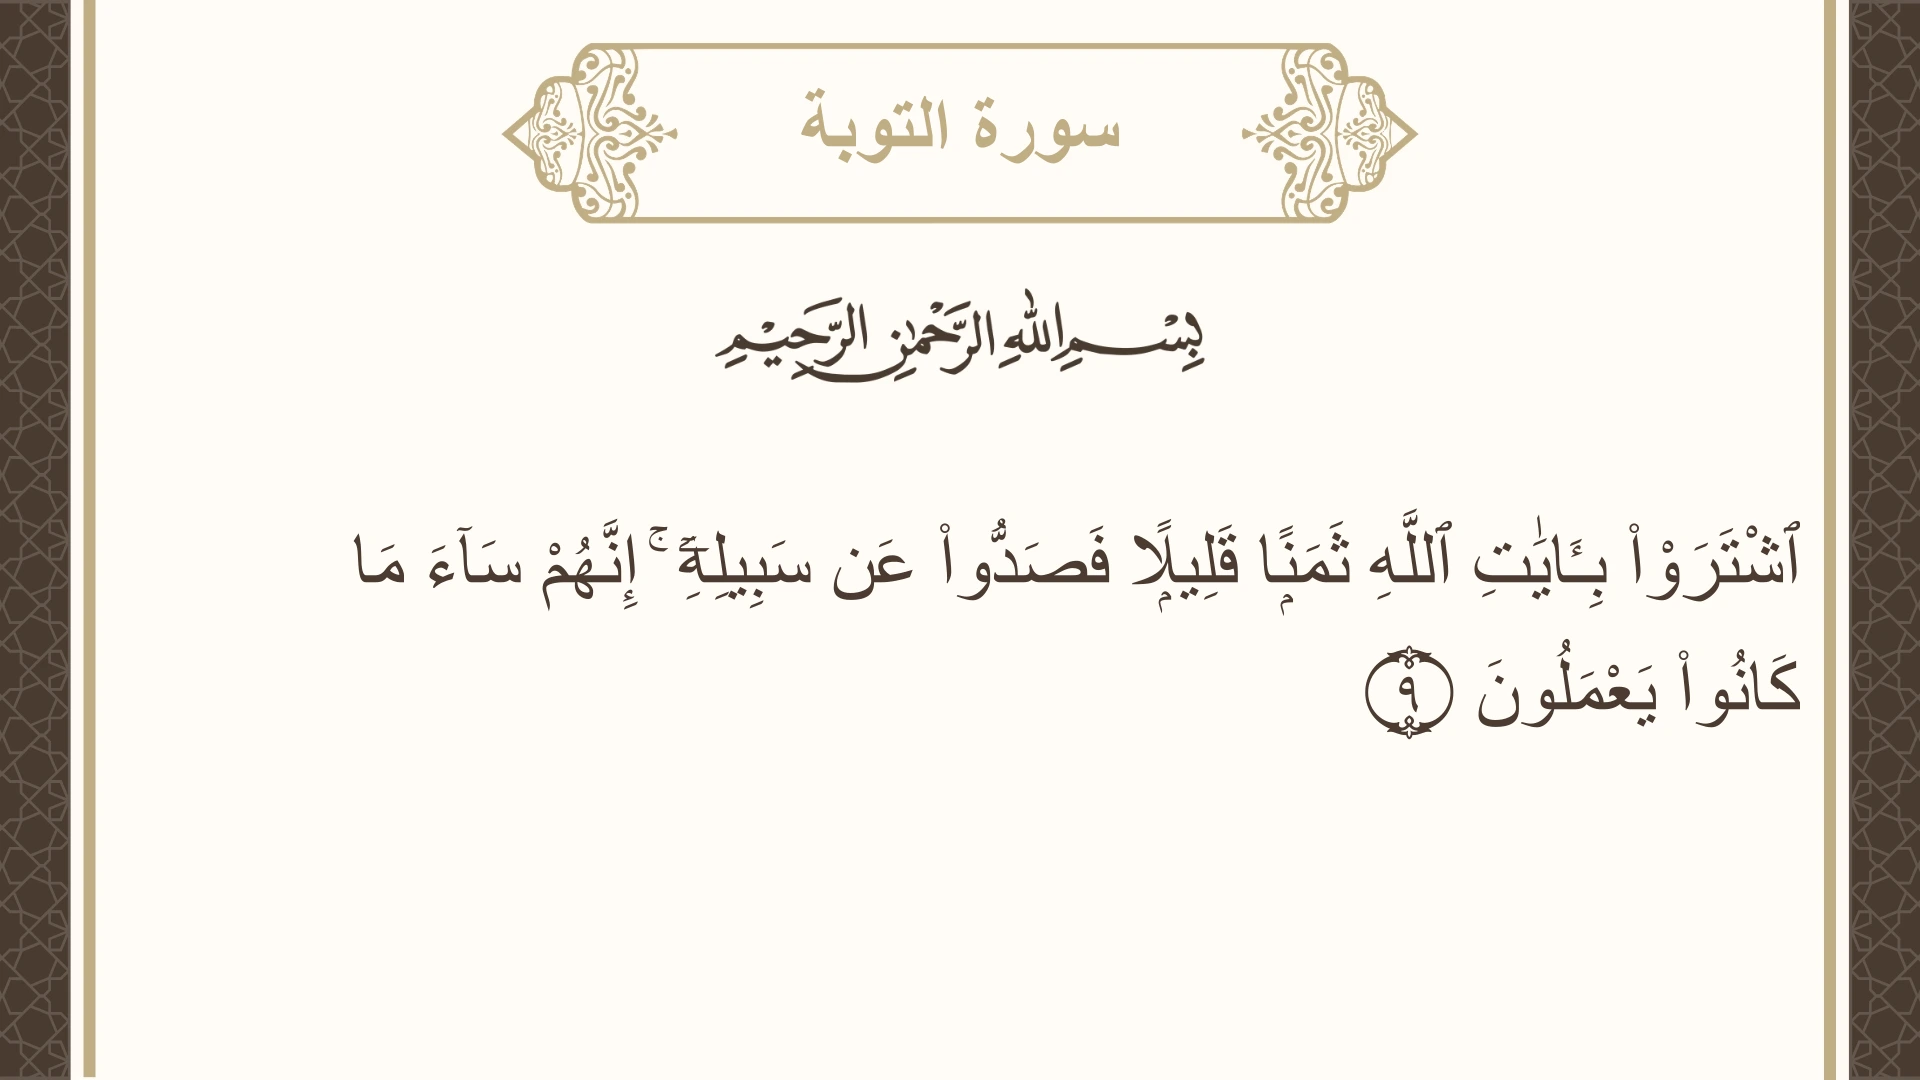 سورة التوبة
بِسْمِ اللهِ الرَّحْمٰنِ الرَّحِيْمِ
ٱشْتَرَوْا۟ بِـَٔايَـٰتِ ٱللَّهِ ثَمَنًۭا قَلِيلًۭا فَصَدُّوا۟ عَن سَبِيلِهِۦٓ ۚ إِنَّهُمْ سَآءَ مَا
كَانُوا۟ يَعْمَلُونَ ٩